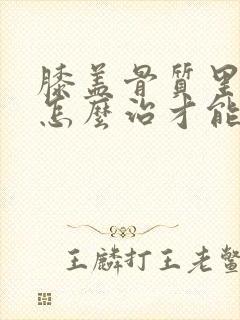 膝盖骨質里
怎麼治才能
王麟打王老鳖